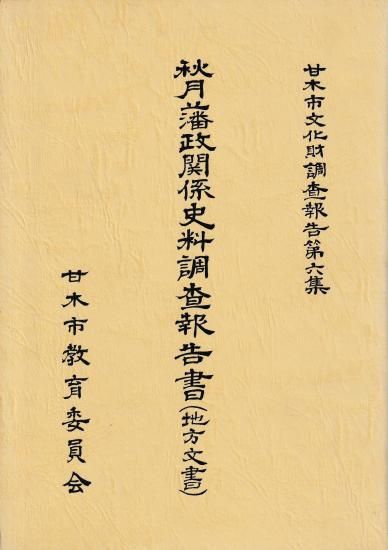 甘木市文化財調査報告第六集
秋月藩政関係史料調査報告書(地方文書)
甘木市教育委員会